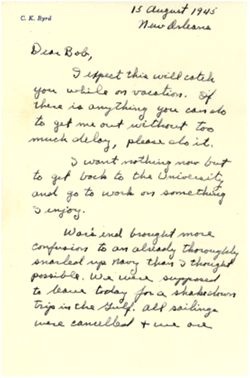 C. K. Byrd
15 August 1945
New Orleans
Dear Bob,
I expect this will catch
you while on vacation. If
there is anything you can do
to get me out without too
much delay, please do it.
I want nothing now but
to get back to the University
and go to work on something
I enjoy.
War's end brought more
confusion to an already thoroughly
snarled up Navy than I thought
possible. We were supposed
to leave today for a shakedown
trip in the Gulf. All sailings
were cancelled & we are